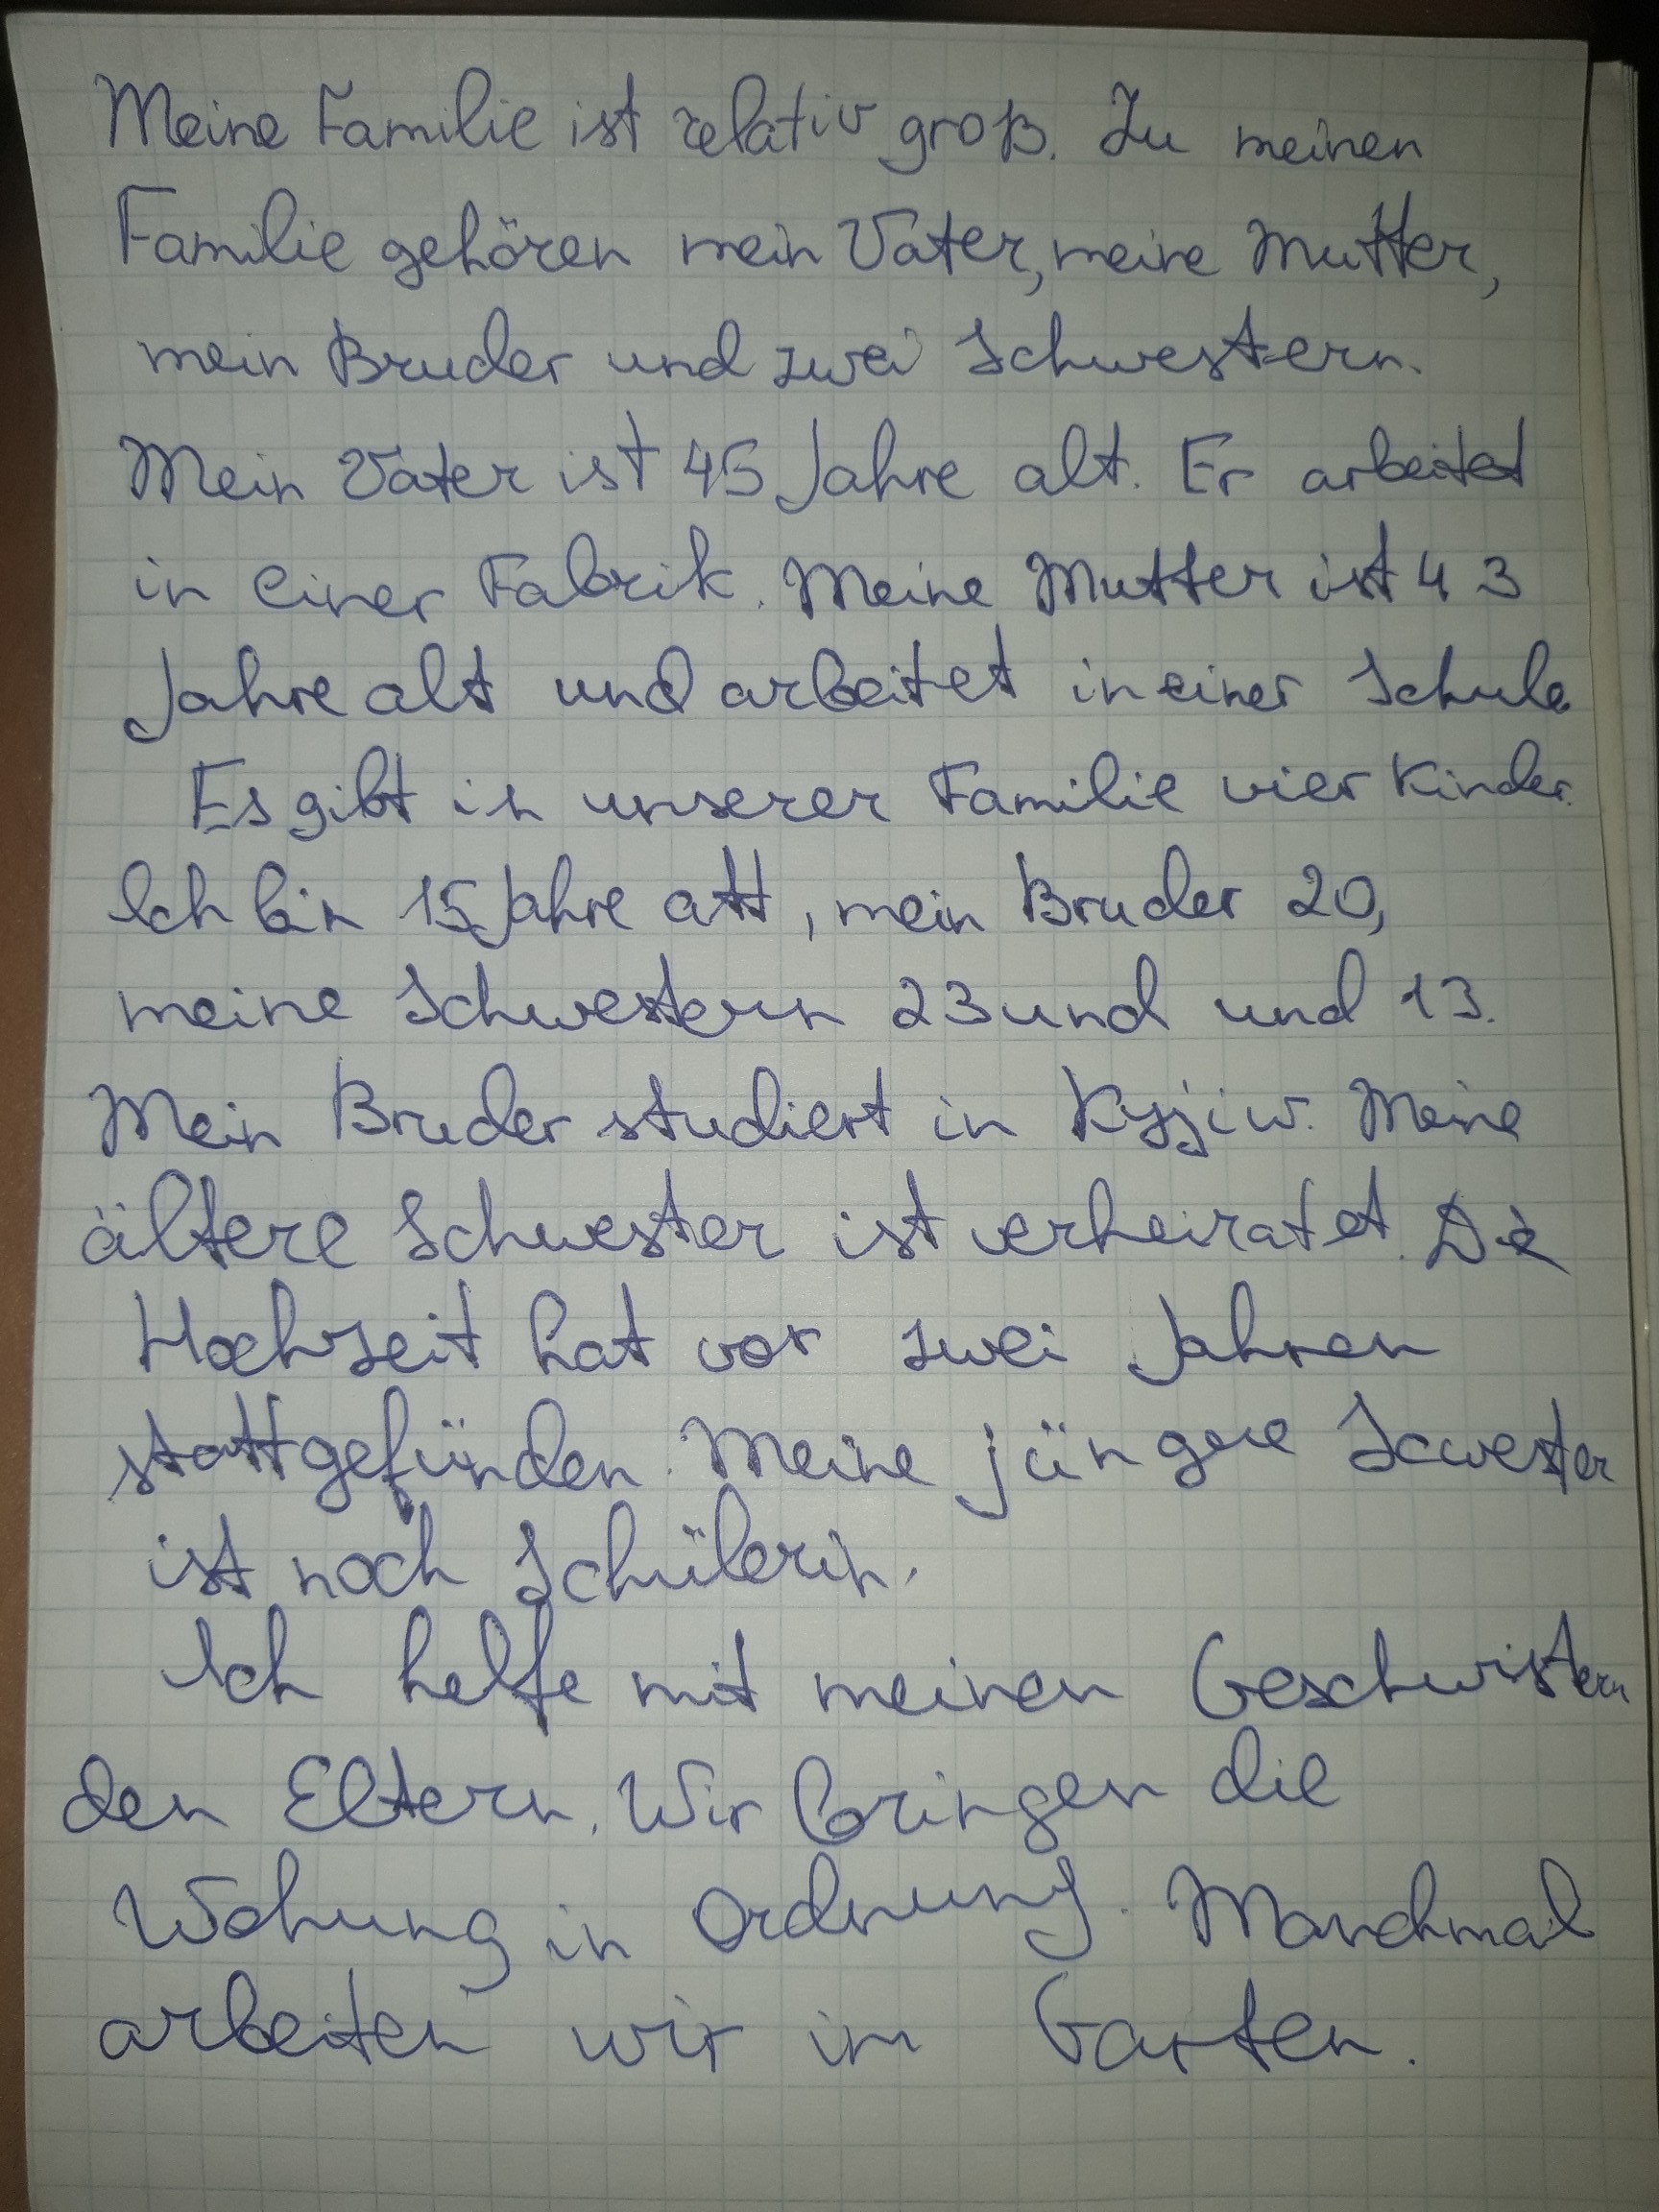 Meine Familie ist relativ groß. Zu meinen
Familie gehören mein Vater, meine Mutter,
mein Bruder und zwei Schwestern.
Mein Vater ist 45 Jahre alt. Er arbeitet
in einer Fabrik. Meine Mutter ist 43
Jahre alt und arbeitet in einer Schule
Es gibt in unserer Familie vier Kinder.
Ich bin 15 Jahre att, mein Bruder 20,
meine Schwestern 23 und und 13.
Mein Bruder studiert in Kyjiw. Meine
ältere Schwester ist verheiratet. Die
Hochzeit hat vor zwei Jahren
stattgefünden. Meine jüngere Scwester
ist noch Schülerin.
Ich helfe mit meinen Geschwistern
den Eltern. Wir bringen die
Wohung in Ordnung. Manchmal
arbeiten wir im Garten.